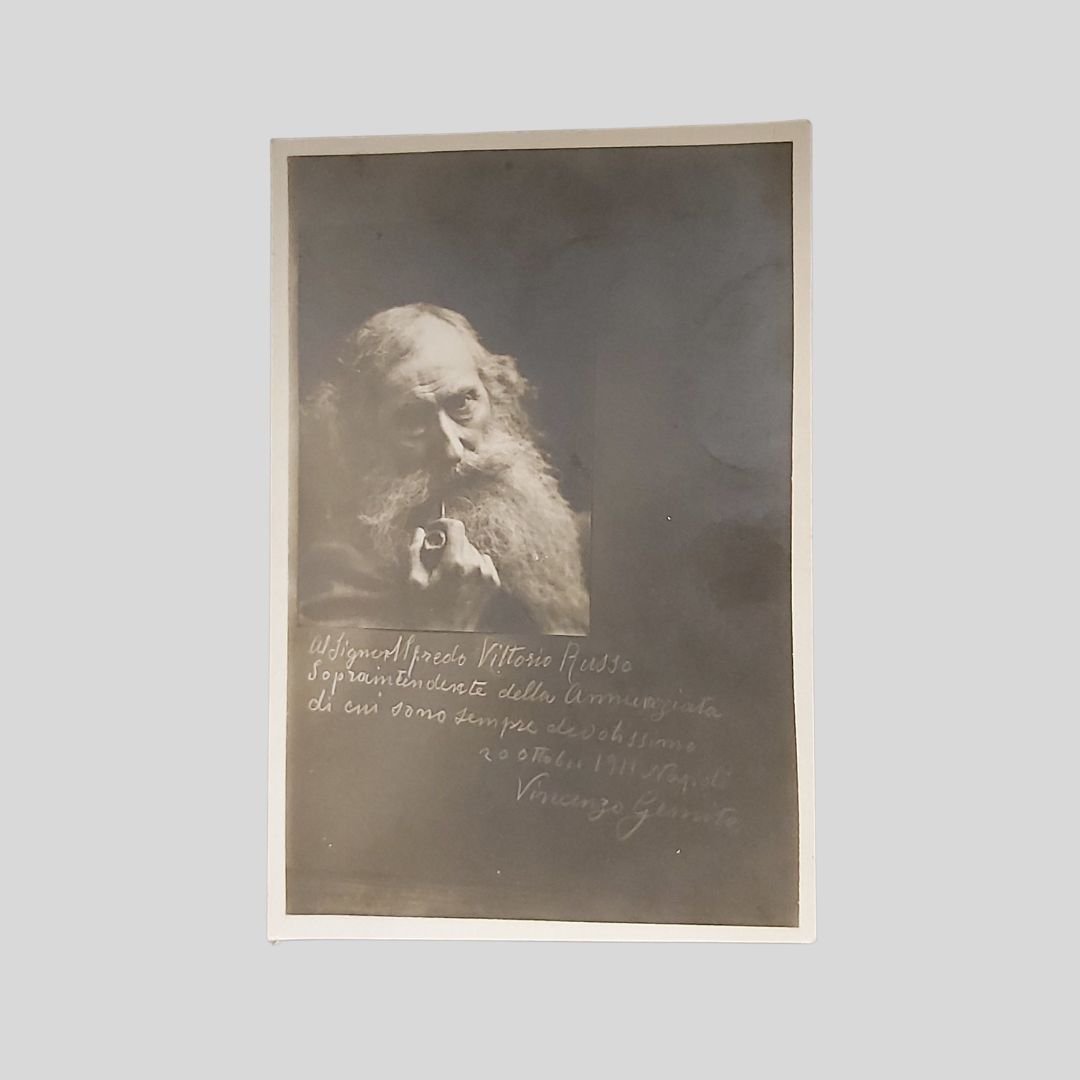 Al Signor Alfredo Vittorio Russo
Sopraintendente della Annunziata
di cui sono sempre devotissimo
20 ottobre 1911 Napoli
Vincenzo Gemito